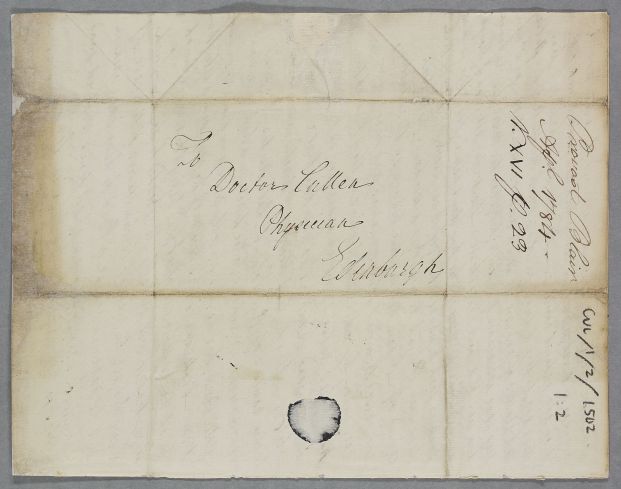 To
Doctor Cullen
Physician
Edinburgh
Provost Blain
Sept. 1784.
V. XVI P. 23
CUL/1/2/1502
1:2